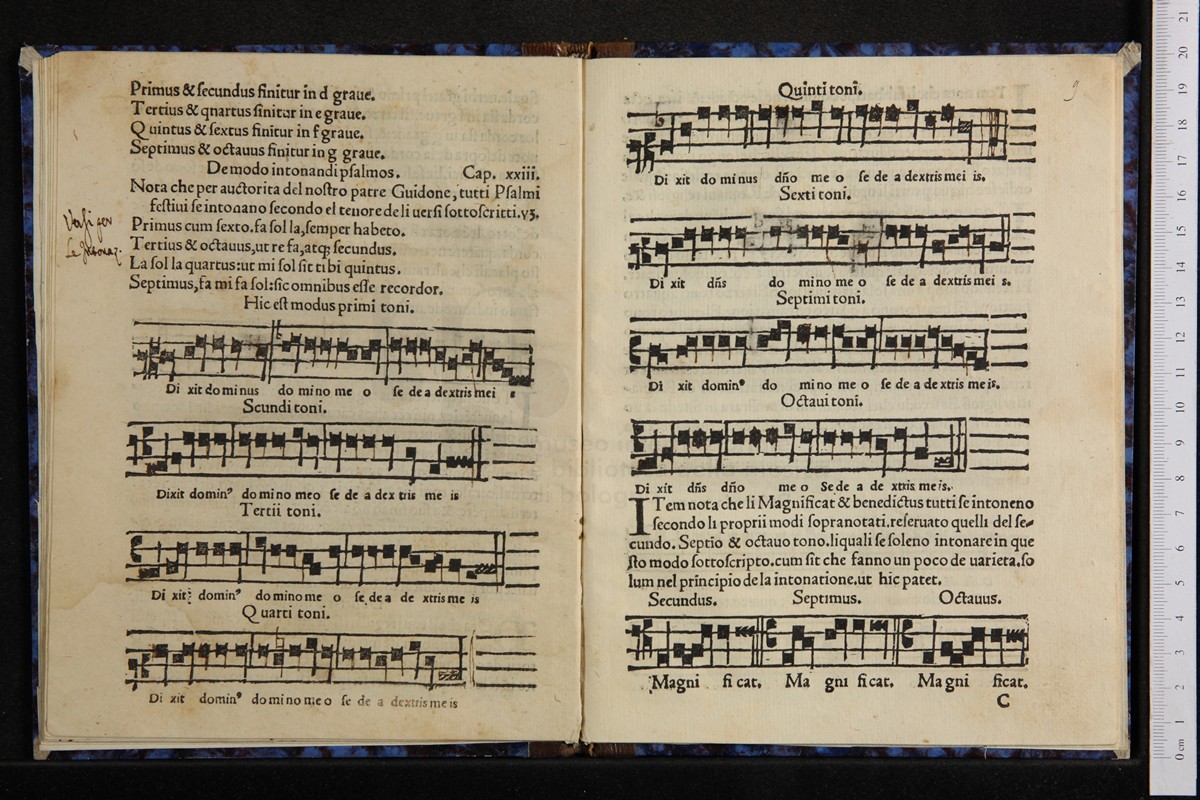 Primus & ſecundus finitur in d graue.
Tertius & qnartus finitur in e graue.
Quintus & ſextus finitur in f graue.
Septimus & octauus finitur in g graue.
De modo intonandi pſalmos. Cap. xxiii.
Nota che per auctorita del noſtro patre Guidone, tutti Pſalmi
feſtiui ſe intonano ſecondo el tenore de li uerſi ſottoſcritti. vȝ.
Primus cum ſexto. fa ſol la, ſemper habeto.
Tertius & octauus, ut re fa, atqȝ ſecundus.
La ſol la quartus: ut mi ſol ſit tibi quintus.
Septimus, fa mi fa ſol: ſic omnibus eſſe recordor.
Hic eſt modus primi toni.
Di xit do mi nus do mi no me o ſe de a dextris mei s
Scundi toni.
Dixit dominꝰ do mi no meo ſe de a dex tris me is
Tertii toni.
Di xit: dominꝰ do mino me o ſe de a de xtris me is
Quarti toni.
Di xit dominꝰ do mi no me o ſe de a dextris me is
9
Quinti toni.
Di xit do mi nus dño me o ſe de a dextris mei is.
Sexti toni.
Di xit dñs do mi no me o ſe de a dextris mei s.
Septimi toni.
Di xit dominꝰ do mi no me o ſe de a de xtris me is.
Octaui toni.
Di xit dñs dño me o Se de a de xtris me is.
ITem nota che li Magnificat & benedictus tutti ſe intoneno
ſecondo li proprii modi ſopranotati. reſeruato quelli del ſe-
cundo. Septio & octauo tono. li quali ſe ſoleno intonare in que
ſto modo ſottoſcripto. cum ſit che fanno un poco de uarieta. ſo
lum nel principio de la intonatione. ut hic patet.
Secundus. Septimus. Octauus.
Magni fi cat. Ma gni fi cat. Ma gni ficat.
C